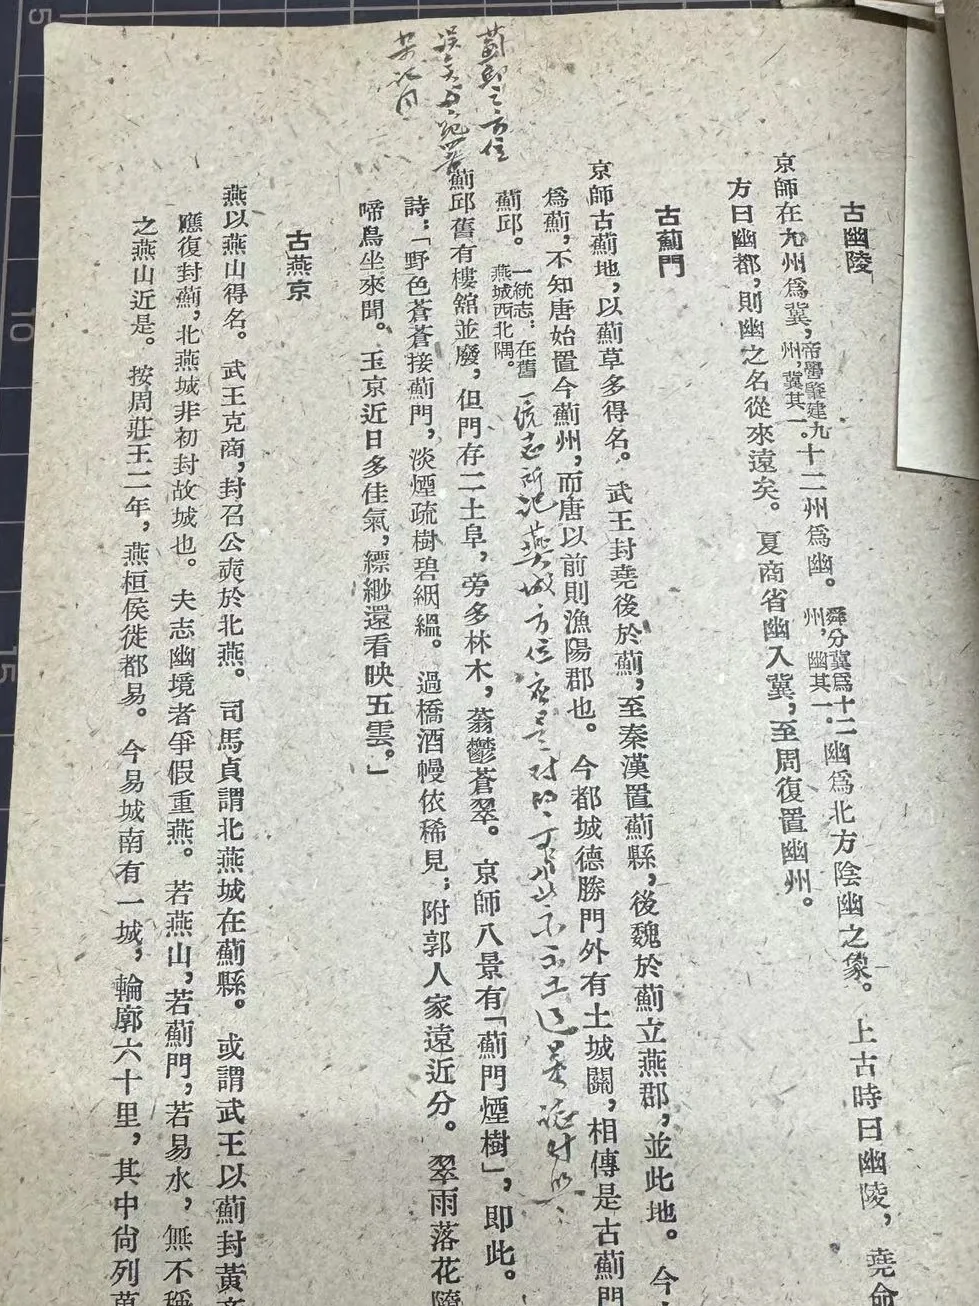 古幽陵
京師在九州爲冀，帝嚳肇建九州，冀其一。十二州爲幽。舜分冀爲十二州，幽其一。幽爲北方陰幽之象。上古時曰幽陵，堯命
方曰幽都，則幽之名從來遠矣。夏商省幽入冀，至周復置幽州。
古薊門
京師古薊地，以薊草多得名。武王封堯後於薊，至秦漢置薊縣，後魏於薊立燕郡，並此地。今
爲薊，不知唐始置今薊州，而唐以前則漁陽郡也。今都城德勝門外有土城關，相傳是古薊門
薊邱。一統志：在舊燕城西北隅。
一統志所记燕城方位
薊邱之方位
薊邱舊有樓舘並廢，但門存二土阜，旁多林木，蓊鬱蒼翠。京師八景有「薊門煙樹」，即此。
詩：「野色蒼蒼接薊門，淡煙疏樹碧絪緼。過橋酒幔依稀見；附郭人家遠近分。翠雨落花隨
啼鳥坐來聞。玉京近日多佳氣，縹緲還看映五雲。」
古燕京
燕以燕山得名。武王克商，封召公奭於北燕。司馬貞謂北燕城在薊縣。或謂武王以薊封黃帝
應復封薊，北燕城非初封故城也。夫志幽境者爭假重燕。若燕山，若薊門，若易水，無不稱
之燕山近是。按周莊王二年，燕桓侯徙都易。今易城南有一城，輪廓六十里，其中尙列萬